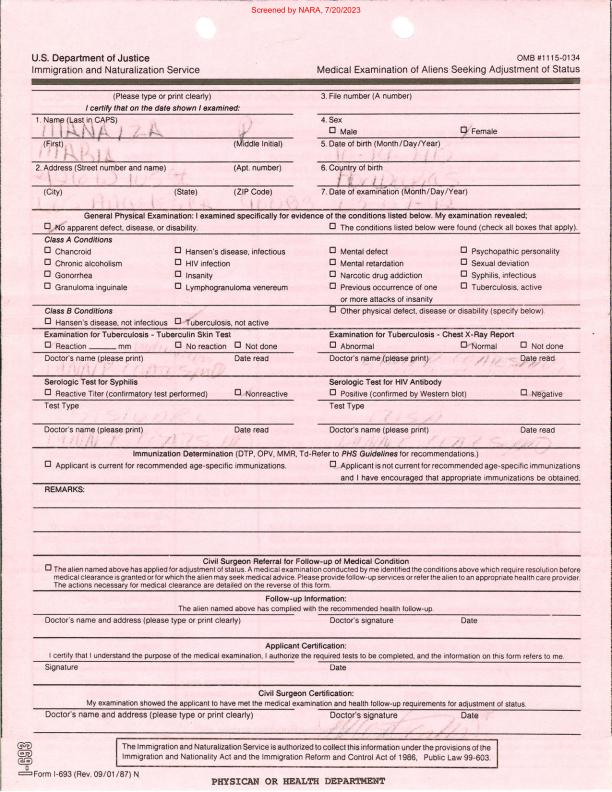 Screened by NARA, 7/20/2023
U.S. Department of Justice
Immigration and Naturalization Service
OMB #1115-0134
Medical Examination of Aliens Seeking Adjustment of Status
(Please type or print clearly)
I certify that on the date shown I examined:
3. File number (A number)
1. Name (Last in CAPS)
4. Sex
☐ Male ☐ Female
(First) (Middle Initial)
MARIA
5. Date of birth (Month/Day/Year)
2. Address (Street number and name) (Apt. number)
6. Country of birth
(City) (State) (ZIP Code)
7. Date of examination (Month/Day/Year)
General Physical Examination: I examined specifically for evidence of the conditions listed below. My examination revealed;
☐ No apparent defect, disease, or disability. ☐ The conditions listed below were found (check all boxes that apply).
Class A Conditions
☐ Chancroid ☐ Hansen's disease, infectious ☐ Mental defect ☐ Psychopathic personality
☐ Chronic alcoholism ☐ HIV infection ☐ Mental retardation ☐ Sexual deviation
☐ Gonorrhea ☐ Insanity ☐ Narcotic drug addiction ☐ Syphilis, infectious
☐ Granuloma inguinale ☐ Lymphogranuloma venereum ☐ Previous occurrence of one ☐ Tuberculosis, active
or more attacks of insanity
Class B Conditions
☐ Other physical defect, disease or disability (specify below).
☐ Hansen's disease, not infectious ☐ Tuberculosis, not active
Examination for Tuberculosis - Tuberculin Skin Test
Examination for Tuberculosis - Chest X-Ray Report
☐ Reaction ______ mm ☐ No reaction ☐ Not done
☐ Abnormal ☐ Normal ☐ Not done
Doctor's name (please print) Date read
Doctor's name (please print) Date read
Serologic Test for Syphilis
Serologic Test for HIV Antibody
☐ Reactive Titer (confirmatory test performed) ☐ Nonreactive
☐ Positive (confirmed by Western blot) ☐ Negative
Test Type
Test Type
Doctor's name (please print) Date read
Doctor's name (please print) Date read
Immunization Determination (DTP, OPV, MMR, Td-Refer to PHS Guidelines for recommendations.)
☐ Applicant is current for recommended age-specific immunizations.
☐ Applicant is not current for recommended age-specific immunizations
and I have encouraged that appropriate immunizations be obtained.
REMARKS:
Civil Surgeon Referral for Follow-up of Medical Condition
☐ The alien named above has applied for adjustment of status. A medical examination conducted by me identified the conditions above which require resolution before
medical clearance is granted or for which the alien may seek medical advice. Please provide follow-up services or refer the alien to an appropriate health care provider.
The actions necessary for medical clearance are detailed on the reverse of this form.
Follow-up Information:
The alien named above has complied with the recommended health follow-up.
Doctor's name and address (please type or print clearly) Doctor's signature Date
Applicant Certification:
I certify that I understand the purpose of the medical examination, I authorize the required tests to be completed, and the information on this form refers to me.
Signature Date
Civil Surgeon Certification:
My examination showed the applicant to have met the medical examination and health follow-up requirements for adjustment of status.
Doctor's name and address (please type or print clearly) Doctor's signature Date
The Immigration and Naturalization Service is authorized to collect this information under the provisions of the
Immigration and Nationality Act and the Immigration Reform and Control Act of 1986, Public Law 99-603.
I-693
Form I-693 (Rev. 09/01/87) N
PHYSICAN OR HEALTH DEPARTMENT